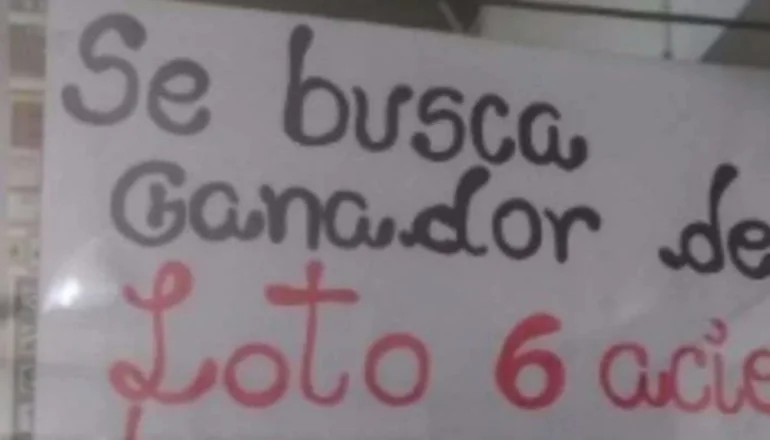 Se busca
Ganador de
Loto 6 acie